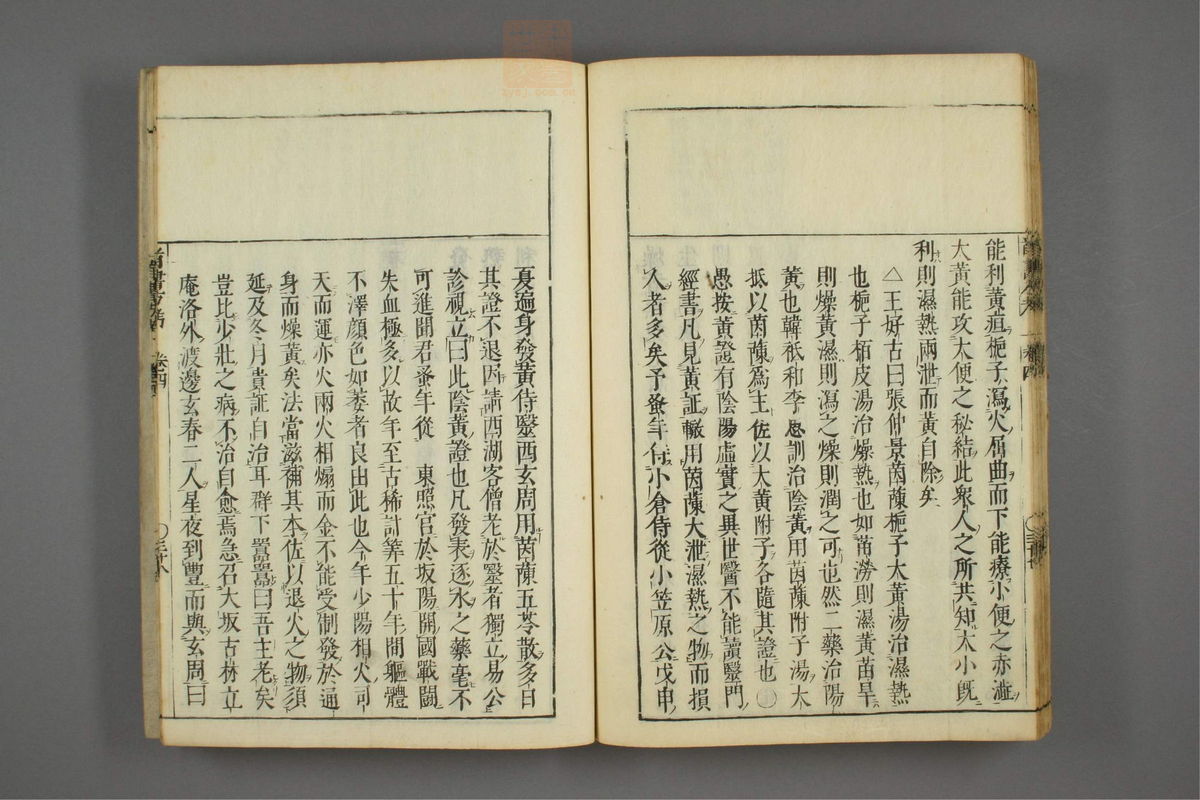 能利黃疸梔子瀉火屈曲而下能療小便之赤澁
大黃能攻大便之秘結此衆人之所共知大小旣
利則濕熱兩泄而黃自除矣
△王好古曰張仲景茵蔯梔子大黃湯治濕熱
也梔子栢皮湯治燥熱也如苗澇則濕黃苗旱
則燥黃濕則瀉之燥則潤之可也然二藥治陽
黃也韓祇和李思訓治陰黃用茵蔯附子湯大
抵以茵蔯爲主佐以大黃附子各隨其證也
愚按黃證有陰陽虛實之異世醫不能讀醫門
經書凡見黃証輙用茵蔯大泄濕熱之物而損
人者多矣予蚤年仕小倉侍從小笠原公戊申
夏遍身發黃侍醫西玄周用茵蔯五苓散多日
其證不退因請西湖客僧老於醫者獨立易公
診視立曰此陰黃證也凡發表逐水之藥毫不
可進聞君蚤年從 東照官於坂陽開國戰鬪
失血極多以故年至古稀計筭五十年間軀體
不澤顔色如萎者良由此也今年少陽相火司
天而運亦火兩火相煽而金不能受制發於通
身而燥黃矣法當滋補其本佐以退火之物須
延及冬月貴証自治耳群下嚣嚣曰吾主老矣
豈比少壯之病不治自愈焉急召大坂古林立
庵洛外渡邊玄春二人星夜到豐而與玄周曰
卷四
卷四